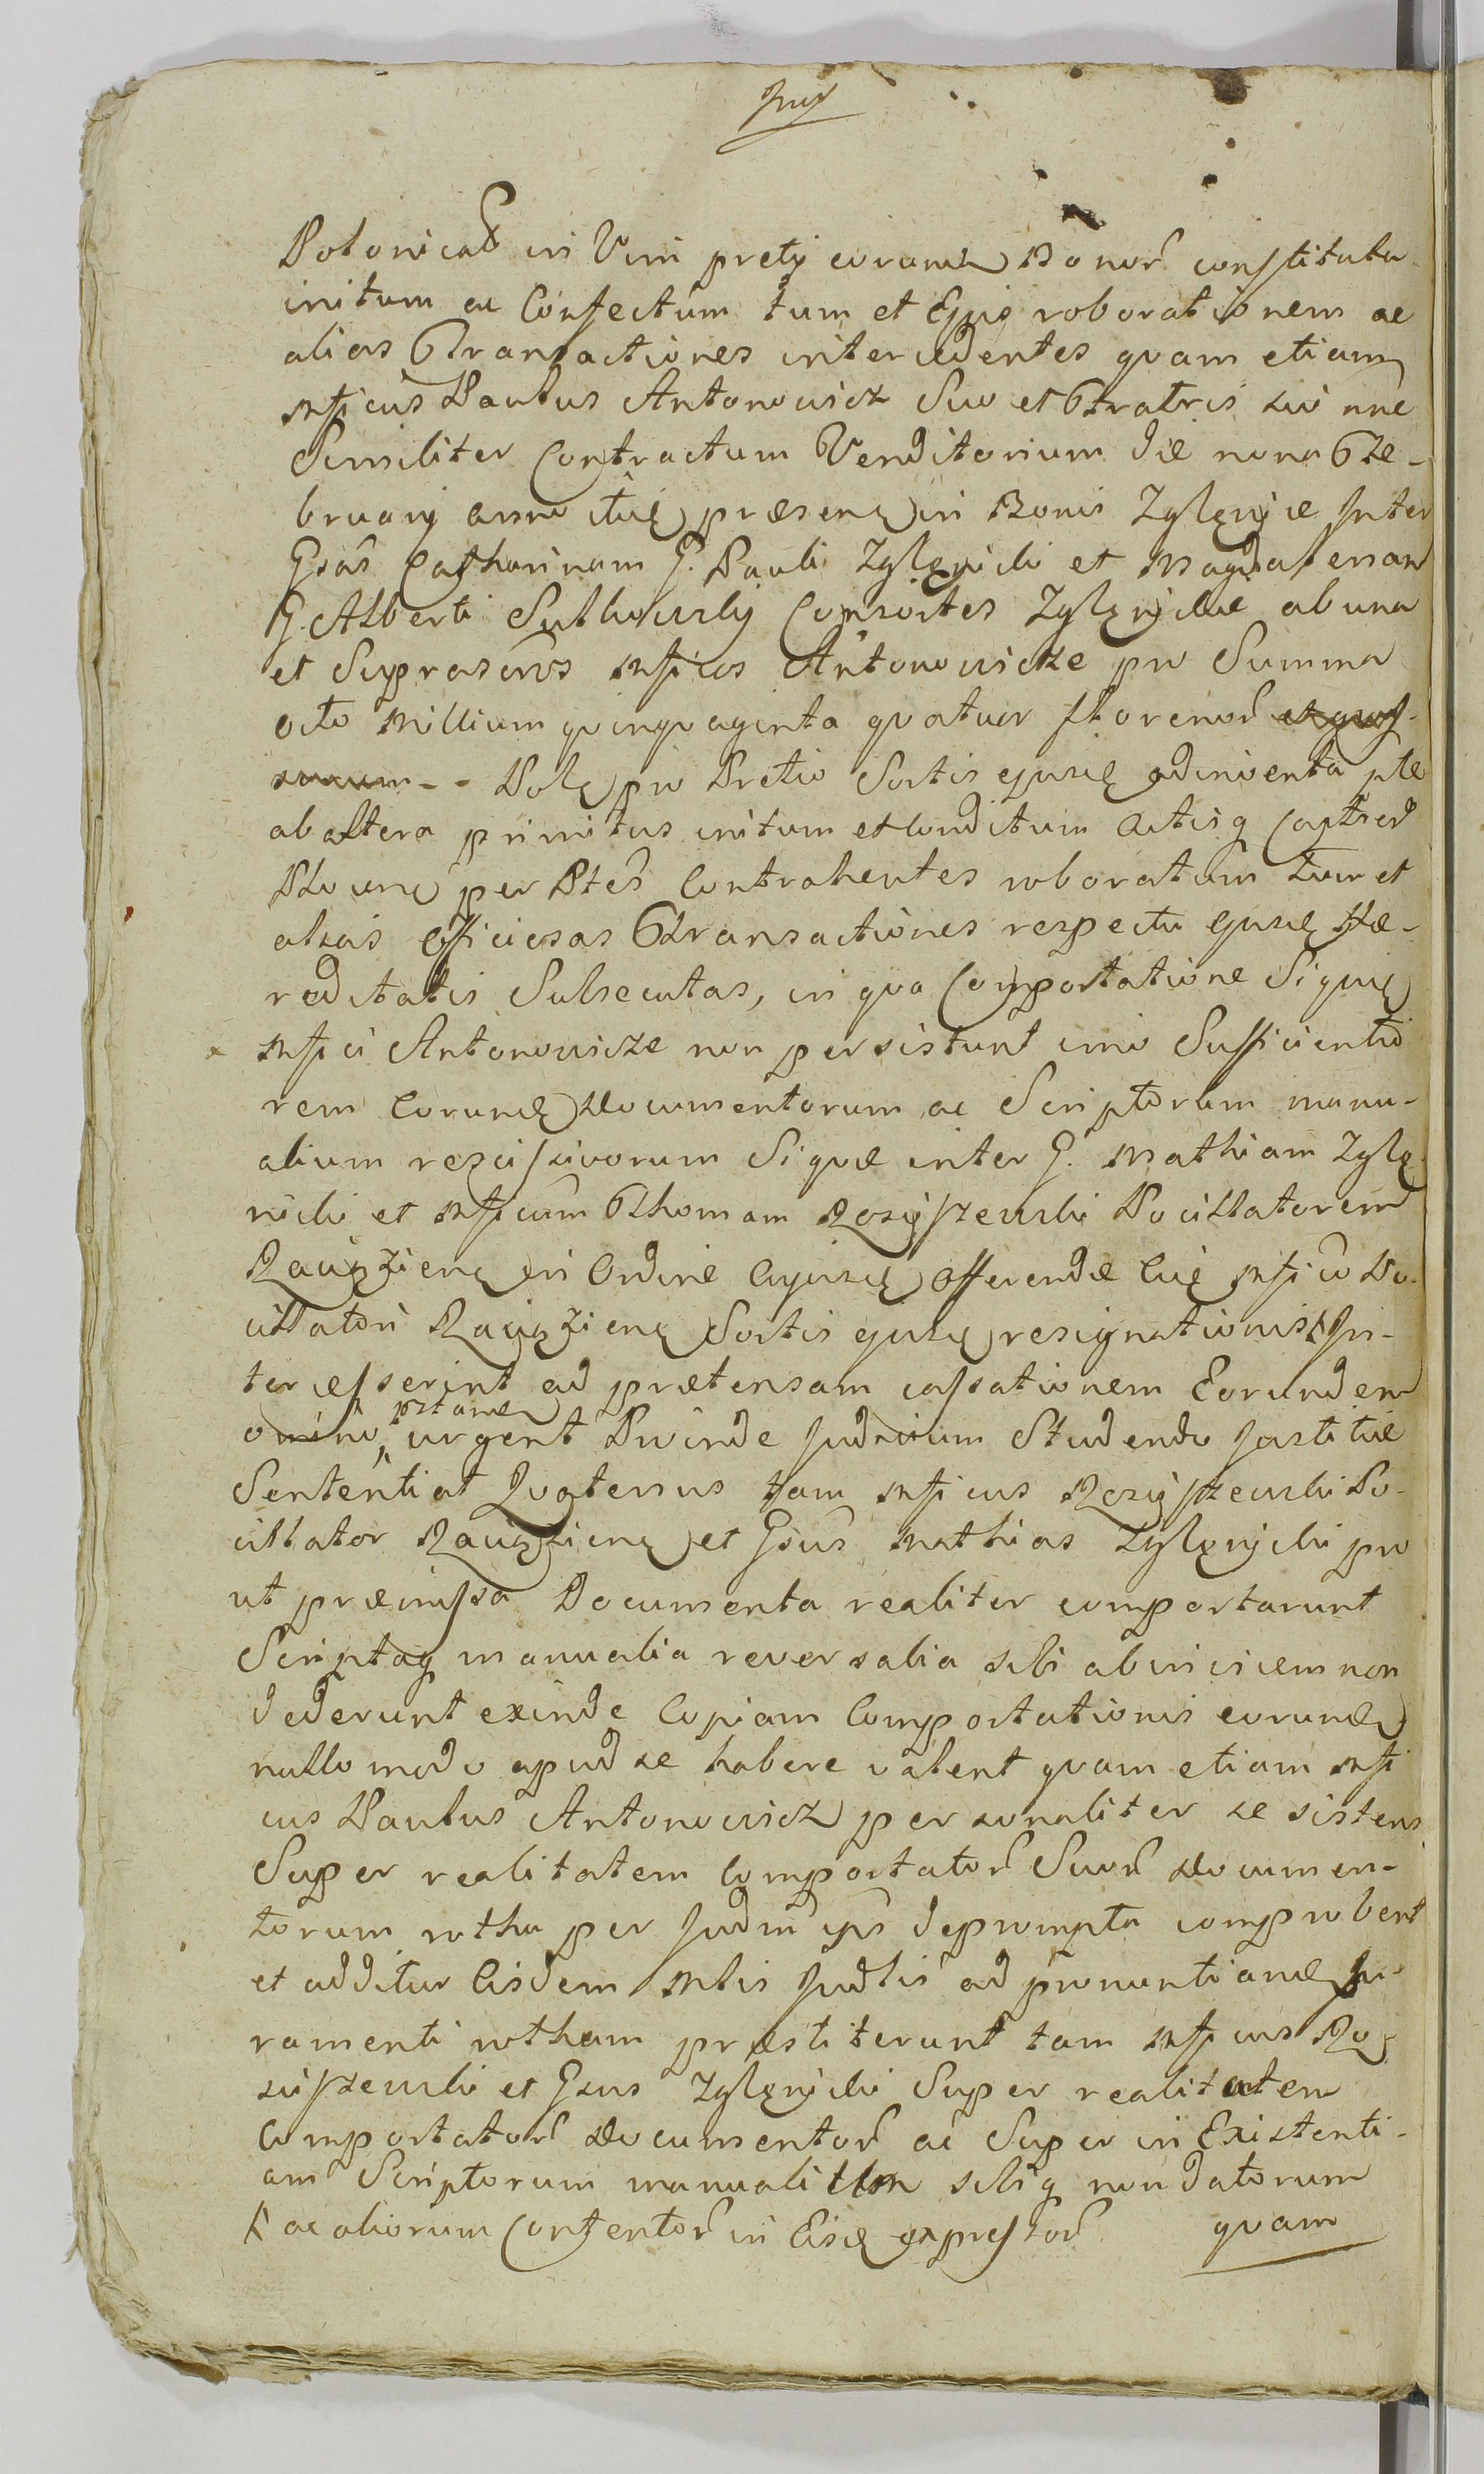 Polonical in Vim pretij eorund Bonor constituta
initum ac Confectum tum et Ejus roborationem ac
alias Transactiones intercedentes quam etiam
Mficus Paulus Antonowicz Suo et Fratris sui nne
Similiter Contractum Venditorium die nona Fe-
bruarij anni itue præsenę in Bonis Zglęnice Inter
Gsas Catharinam G. Pauli Zglęnicki et Magdalenam
G. Alberti Sutkowskij Consortes Zglęnickie ab una
et Suprascros Mficos Antonowicze pro Summa
octo Millium quinquaginta quatuor florenor et gros-
- - Polę pro Pretio Sortis ejusdę adinventa pte
ab altera primitus initum et conditum Actisq Castred
per Ptes Contrahentes roboratum tum et
alias Officiosas Transactiones respectu ejusdę Hæ-
reditatis Subsecutas, in qua Comportatione Siquidę
Mfici Antonowicze non persistunt imo Sufficientio
rem Eorundę Documentorum ac Scriptorum manu-
alium Siquæ inter G. Mathiam Zglę
nicki et Mficum Thomam Rosciszewski Pocillatorem
Raciązienę in Ordine Cujusdę Offerendæ Eidę Mfico Po-
cillatori Raciązienę Sortis ejusdę resignationis K In-
tercesserint ad prætensam cassationem Eorundem
omino, pstand urgent Proinde Judicium Studendo Justitiæ
Sententiat Quatenus tam Mficus Rosciszewski Po-
cillator Raciązienę et Gsus Mathias Zglęnicki pro
ut præmissa Documenta realiter comportarunt
Scriptaq manualia reversalia sibi ab invicem non
dederunt exinde Copiam Comportationis eorund
nullo modo apud se habere valent quam etiam Mfi
cus Paulus Antonowicz personaliter se sistens
Super realitatem Comportator Suor Documen-
torum rotha per Judm ips deprompta comprobent
et additur Eisdem Mtis Judtis ad pronuntiand Ju-
ramenti rotham præstiterunt tam Mficus Ro
sciszewski et Gsus Zglęnicki Super realitatem
Comportator Documentor ac Super in Existenti-
am Scriptorum manualium sibiq non datorum
K ac aliorum Contentor in Eisdę expressor quam